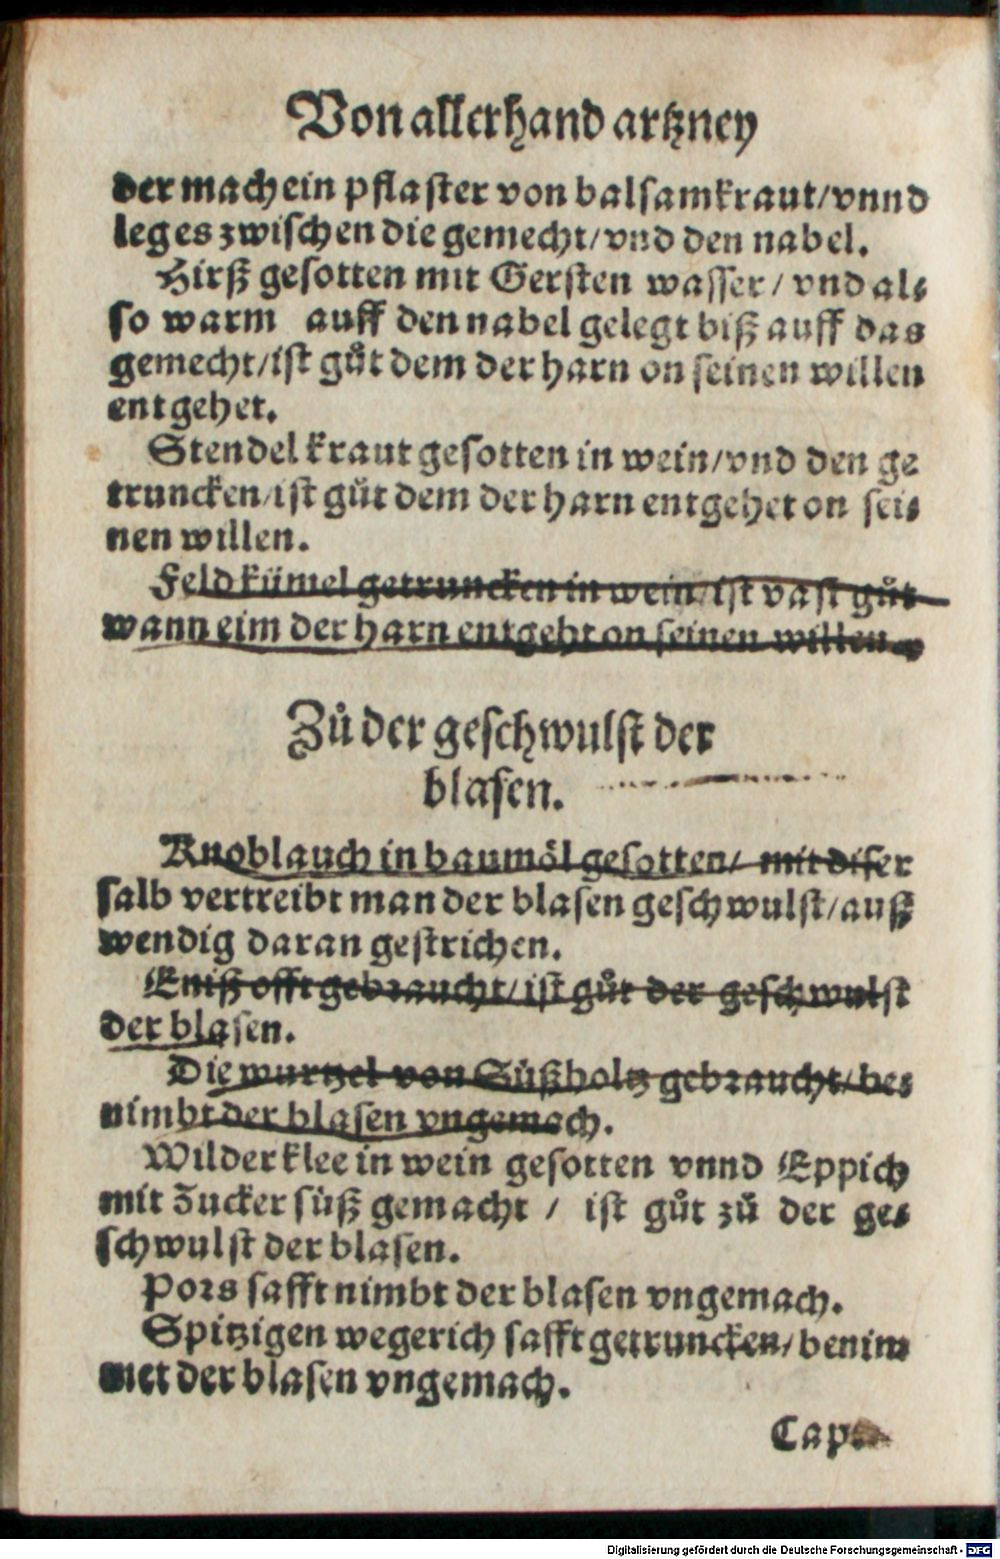 Von allerhand artzney
der mach ein pflaster von balsamkraut/vnnd
leg es zwischen die gemecht/vnd den nabel.
Hirß gesotten mit Gersten wasser/ vnd al⸗
so warm auff den nabel gelegt biß auff das
gemecht/ist gůt dem der harn on seinen willen
entgehet.
Stendelkraut gesotten in wein/vnd den ge
truncken/ist gůt dem der harn entgehet on sei⸗
nen willen.
Feldkümel getruncken in wein/ist vast gůt
wann eim der harn entgeht on seinen willen.
Zů der geschwulst der
blasen.
Knoblauch in baumöl gesotten/ mit diser
salb vertreibt man der blasen geschwulst/auß
wendig daran gestrichen.
Eniß offt gebraucht/ist gůt der geschwulst
der blasen.
Die wurtzel von Süßholtz gebraucht/be⸗
nimbt der blasen vngemach.
Wilder klee in wein gesotten vnnd Eppich
mit Zucker süß gemacht / ist gůt zů der ge⸗
schwulst der blasen.
Pors safft nimbt der blasen vngemach.
Spitzigen wegerich safft getruncken/benim
met der blasen vngemach.
Cap.
Digitalisierung gefördert durch die Deutsche Forschungsgemeinschaft - DFG